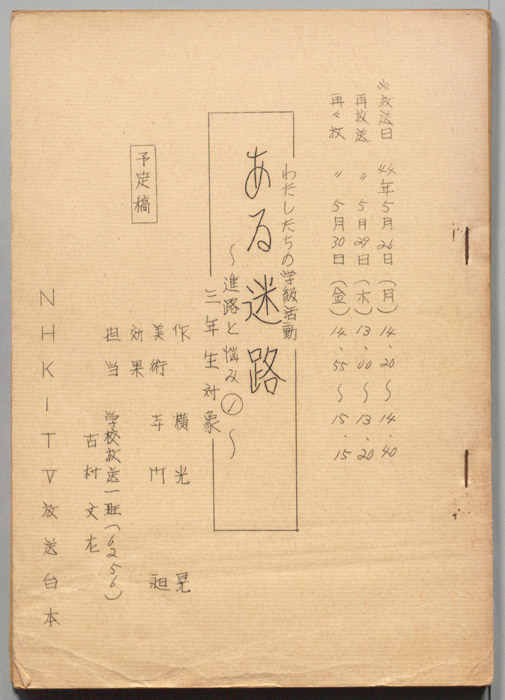 ※放送日 44年5月26日（月）14.20～14.40
再放送 〃 5月29日（木）13.00～13.20
再々放 〃 5月30日（金）14.55～15.15
わたしたちの学級活動
ある迷路
～進路と悩み①～
三年生対象
予定稿
作 横光 晃
美術 寺門
効果
担当 学校放送一班（6256）
古村文
NHK-TV放送台本